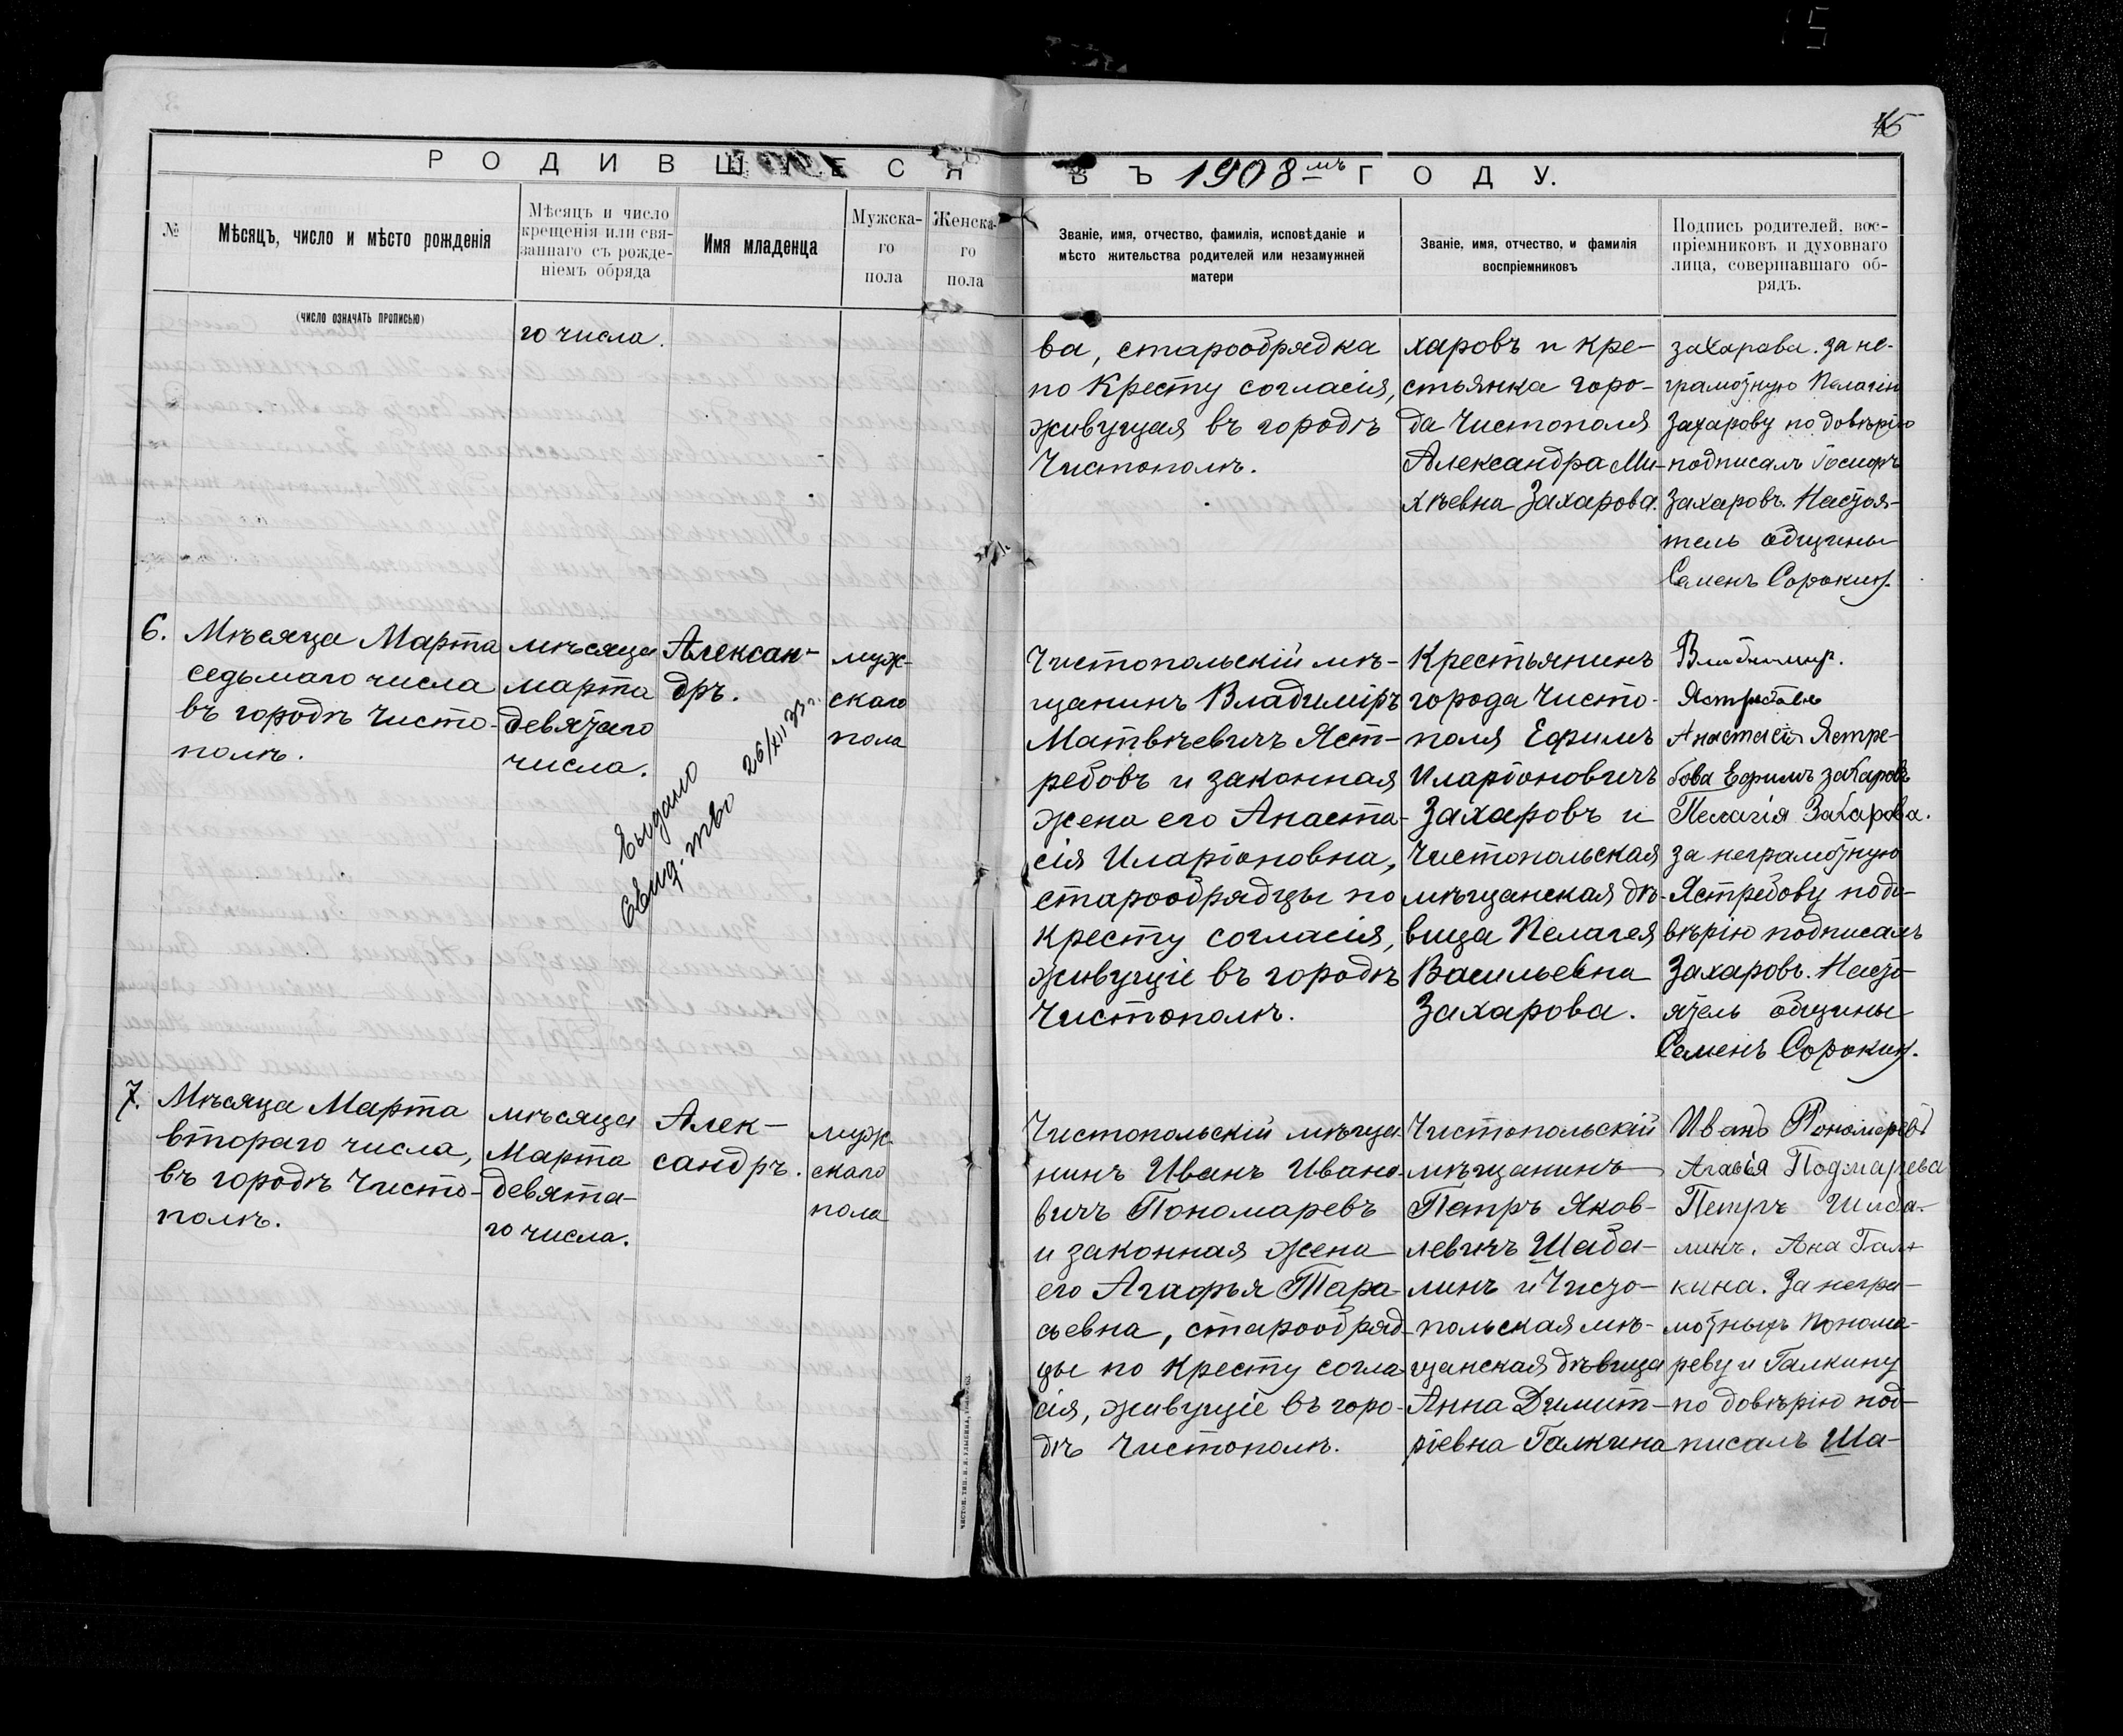 15
РОДИВШІЕСЯ ВЪ 1908мъ ГОДУ.
№
Мѣсяцъ, число и мѣсто рожденія
(число означать прописью)
Мѣсяцъ и число
крещенія или свя-
заннаго съ рожде-
ніемъ обряда
Имя младенца
Мужска-
го
пола
Женска-
го
пола
Званіе, имя, отчество, фамилія, исповѣданіе и
мѣсто жительства родителей или незамужней
матери
Званіе, имя, отчество, и фамилія
воспріемниковъ
Подпись родителей, вос-
пріемниковъ и духовнаго
лица, совершавшаго об-
рядъ.
го числа.
ва, старообрядка
по Кресту согласія,
живущая въ городѣ
Чистополѣ.
харовъ и кре-
стьянка горо-
да Чистополя
Александра Ми-
хѣевна Захарова.
захарова. за не-
грамотную Пелагію
Захарову по довѣрію
подписалъ
Захаровъ. Настоя-
тель общины
Семенъ Сорокин.
6.
Мѣсяца Марта
седьмаго числа
въ городѣ Чисто-
полѣ.
мѣсяца
марта
девятаго
числа.
Алексан-
дръ.
Выдано
свид-тво 26/XII 33 г.
муж-
скаго
пола
Чистопольскій мѣ-
щанинъ Владиміръ
Матвѣевичъ Яст-
ребовъ и законная
жена его Анаста-
сія Иларіоновна,
старообрядцы по
кресту согласія,
живущіе въ городѣ
Чистополѣ.
Крестьянинъ
города Чисто-
поля Ефимъ
Иларіоновичъ
Захаровъ и
Чистопольская
мѣщанская дѣ-
вица Пелагея
Васильевна
Захарова.
Владимир.
Ястребовъ
Анастасія Ястре-
бова Ефимъ захаровъ
Пелагія Захарова.
за неграмотную
Ястребову по до-
вѣрію подписалъ
Захаровъ. Насто-
ятель общины
Семенъ Сорокин.
7.
Мѣсяца Марта
втораго числа,
въ городѣ Чисто-
полѣ.
мѣсяца
Марта
девята-
го числа.
Алек-
сандръ.
муж-
скаго
пола
Чистопольскій мѣща
нинъ Иванъ Ивано-
вичъ Пономаревъ
и законная жена
его Агафья Тара-
сьевна, старообряд-
цы по Кресту согла-
сія, живущіе въ горо-
дѣ Чистополѣ.
Чистопольскій
мѣщанинъ
Петръ Яков-
левичъ Шаба-
линъ и Чисто-
польская мѣ-
щанская дѣвица
Анна Димит-
ріевна Галкина
Иванъ Пономаревъ
Петръ Шаба-
линъ. Ана Гал-
кина. За негра-
мотныхъ Понома-
реву и Галкину
по довѣрію под-
писалъ Ша-